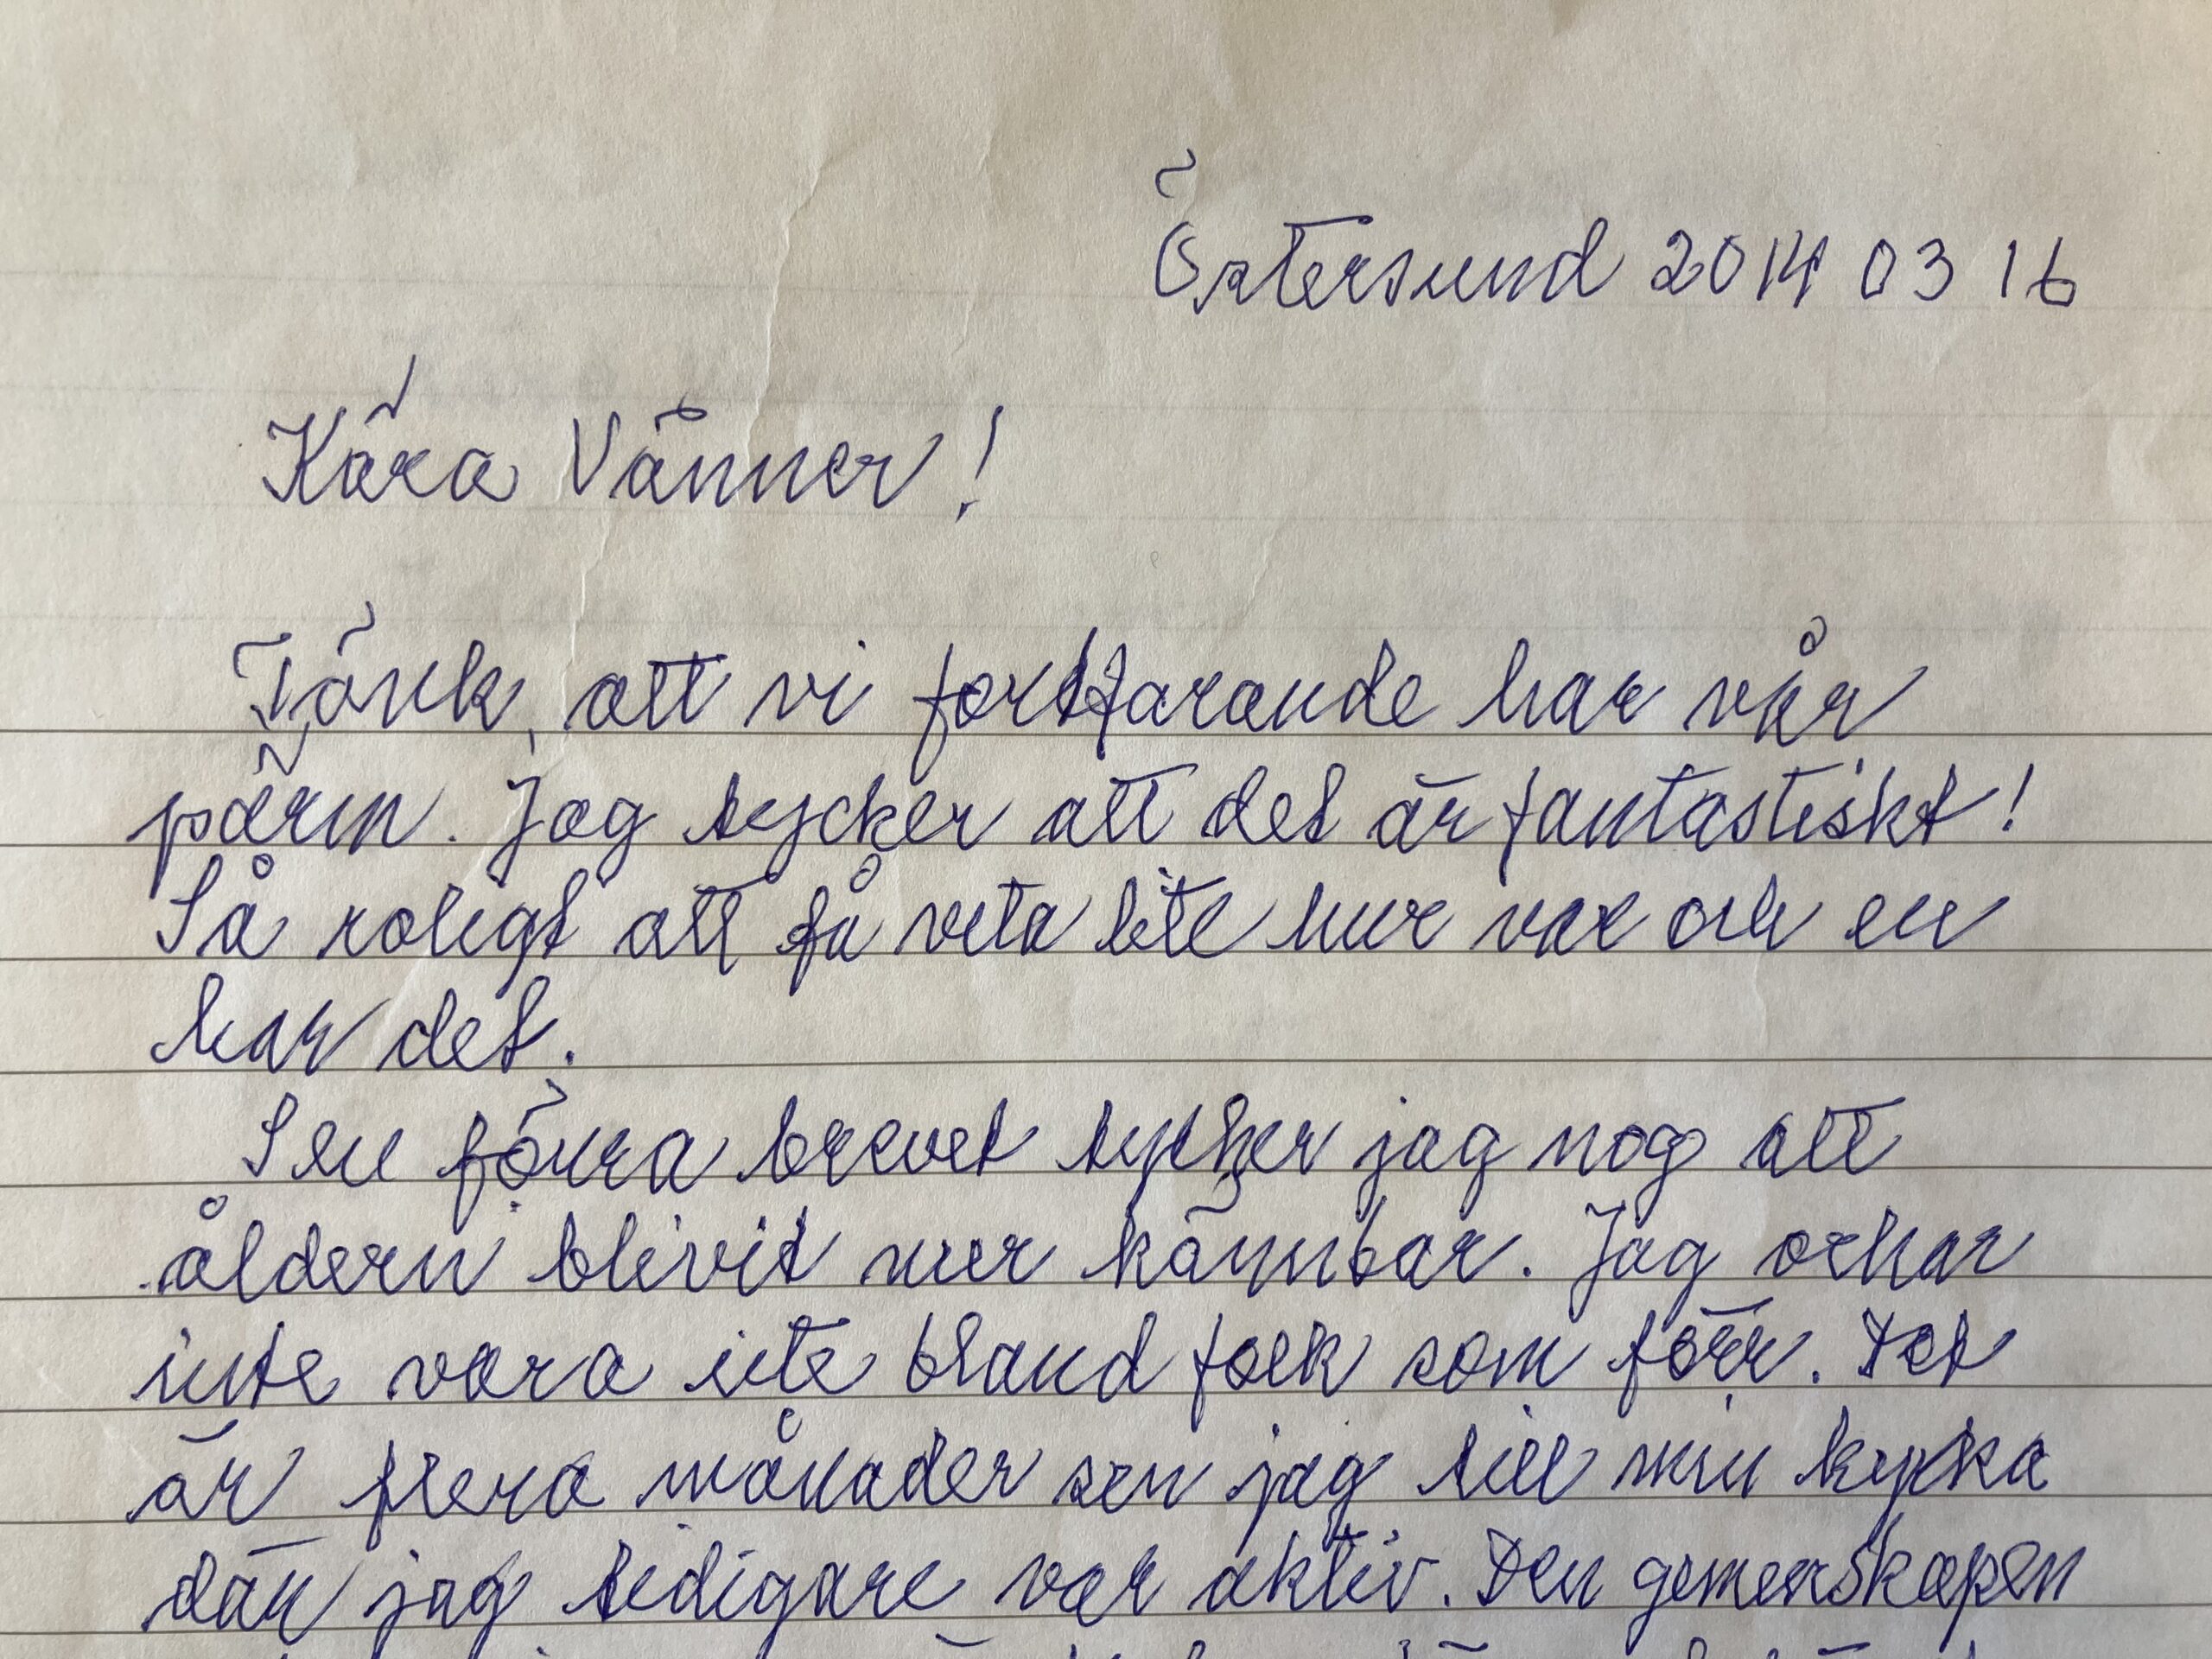 Östersund 2014 03 16
Kära Vänner!
Tänk, att vi fortfarande har vår
pärm. Jag tycker att det är fantastiskt!
Så roligt att få veta lite hur var och en
har det.
Sen förra brevet tycker jag nog att
åldern blivit mer kännbar. Jag orkar
inte vara ute bland folk som förr. Det
är flera månader sen jag till min kyrka
där jag tidigare var aktiv. Den gemenskapen